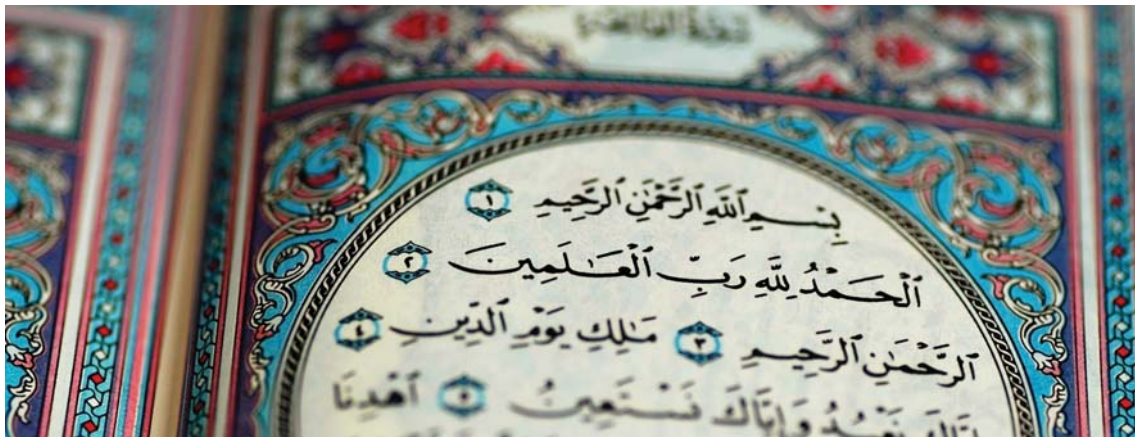 سورة الفاتحة
بِسْمِ ٱللَّهِ ٱلرَّحْمَٰنِ ٱلرَّحِيمِ ١
ٱلْحَمْدُ لِلَّهِ رَبِّ ٱلْعَـٰلَمِينَ ٢
ٱلرَّحْمَٰنِ ٱلرَّحِيمِ ٣ مَـٰلِكِ يَوْمِ ٱلدِّينِ ٤
إِيَّاكَ نَعْبُدُ وَإِيَّاكَ نَسْتَعِينُ ٥ ٱهْدِنَا